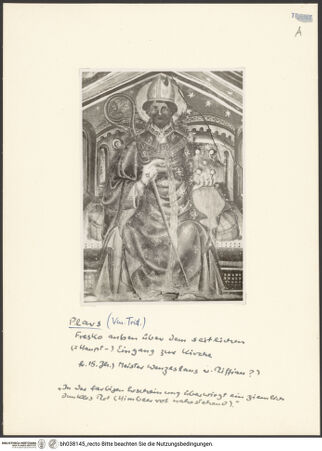 A
Plars (Vin. Trid.)
Fresko außen über dem seitlichen
(Haupt-) Eingang zur Kirche
15. Jh.) Meister Wenzeslaus v. Riffian ?)
"In der farbigen Erscheinung überwiegt ein ziemlich
dunkles Rot (Himbeerrot nahestehend)."
bh038145_recto Bitte beachten Sie die Nutzungsbedingungen.